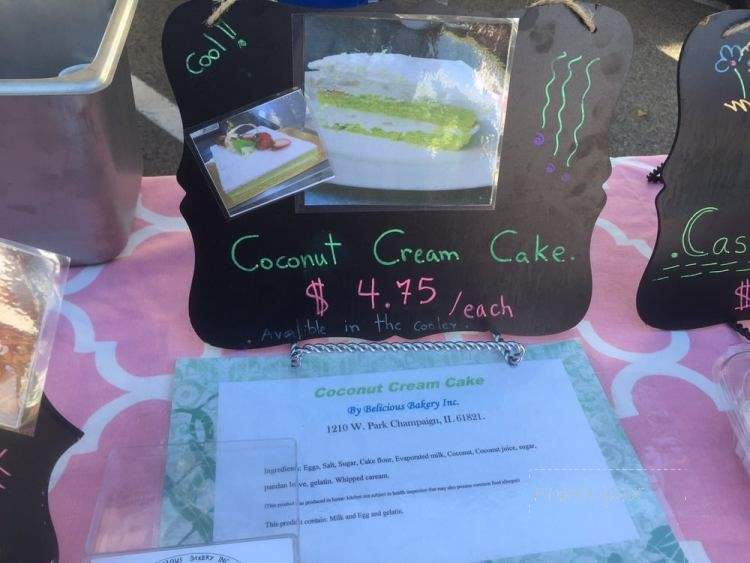 Cool!!
Coconut Cream Cake.
$ 4.75 /each
. Avalible in the cooler.
. Cas
$
Coconut Cream Cake
By Belicious Bakery Inc.
1210 W. Park Champaign, IL 61821.
Ingredient: Eggs, Salt, Sugar, Cake flour, Evaporated milk, Coconut, Coconut juice, sugar,
pandan leave, gelatin. Whipped caream.
(This product was produced in home kitchen not subject to health inspection that may also process common food allergen)
This product contain: Milk and Egg and gelatin.
BAKERY INC